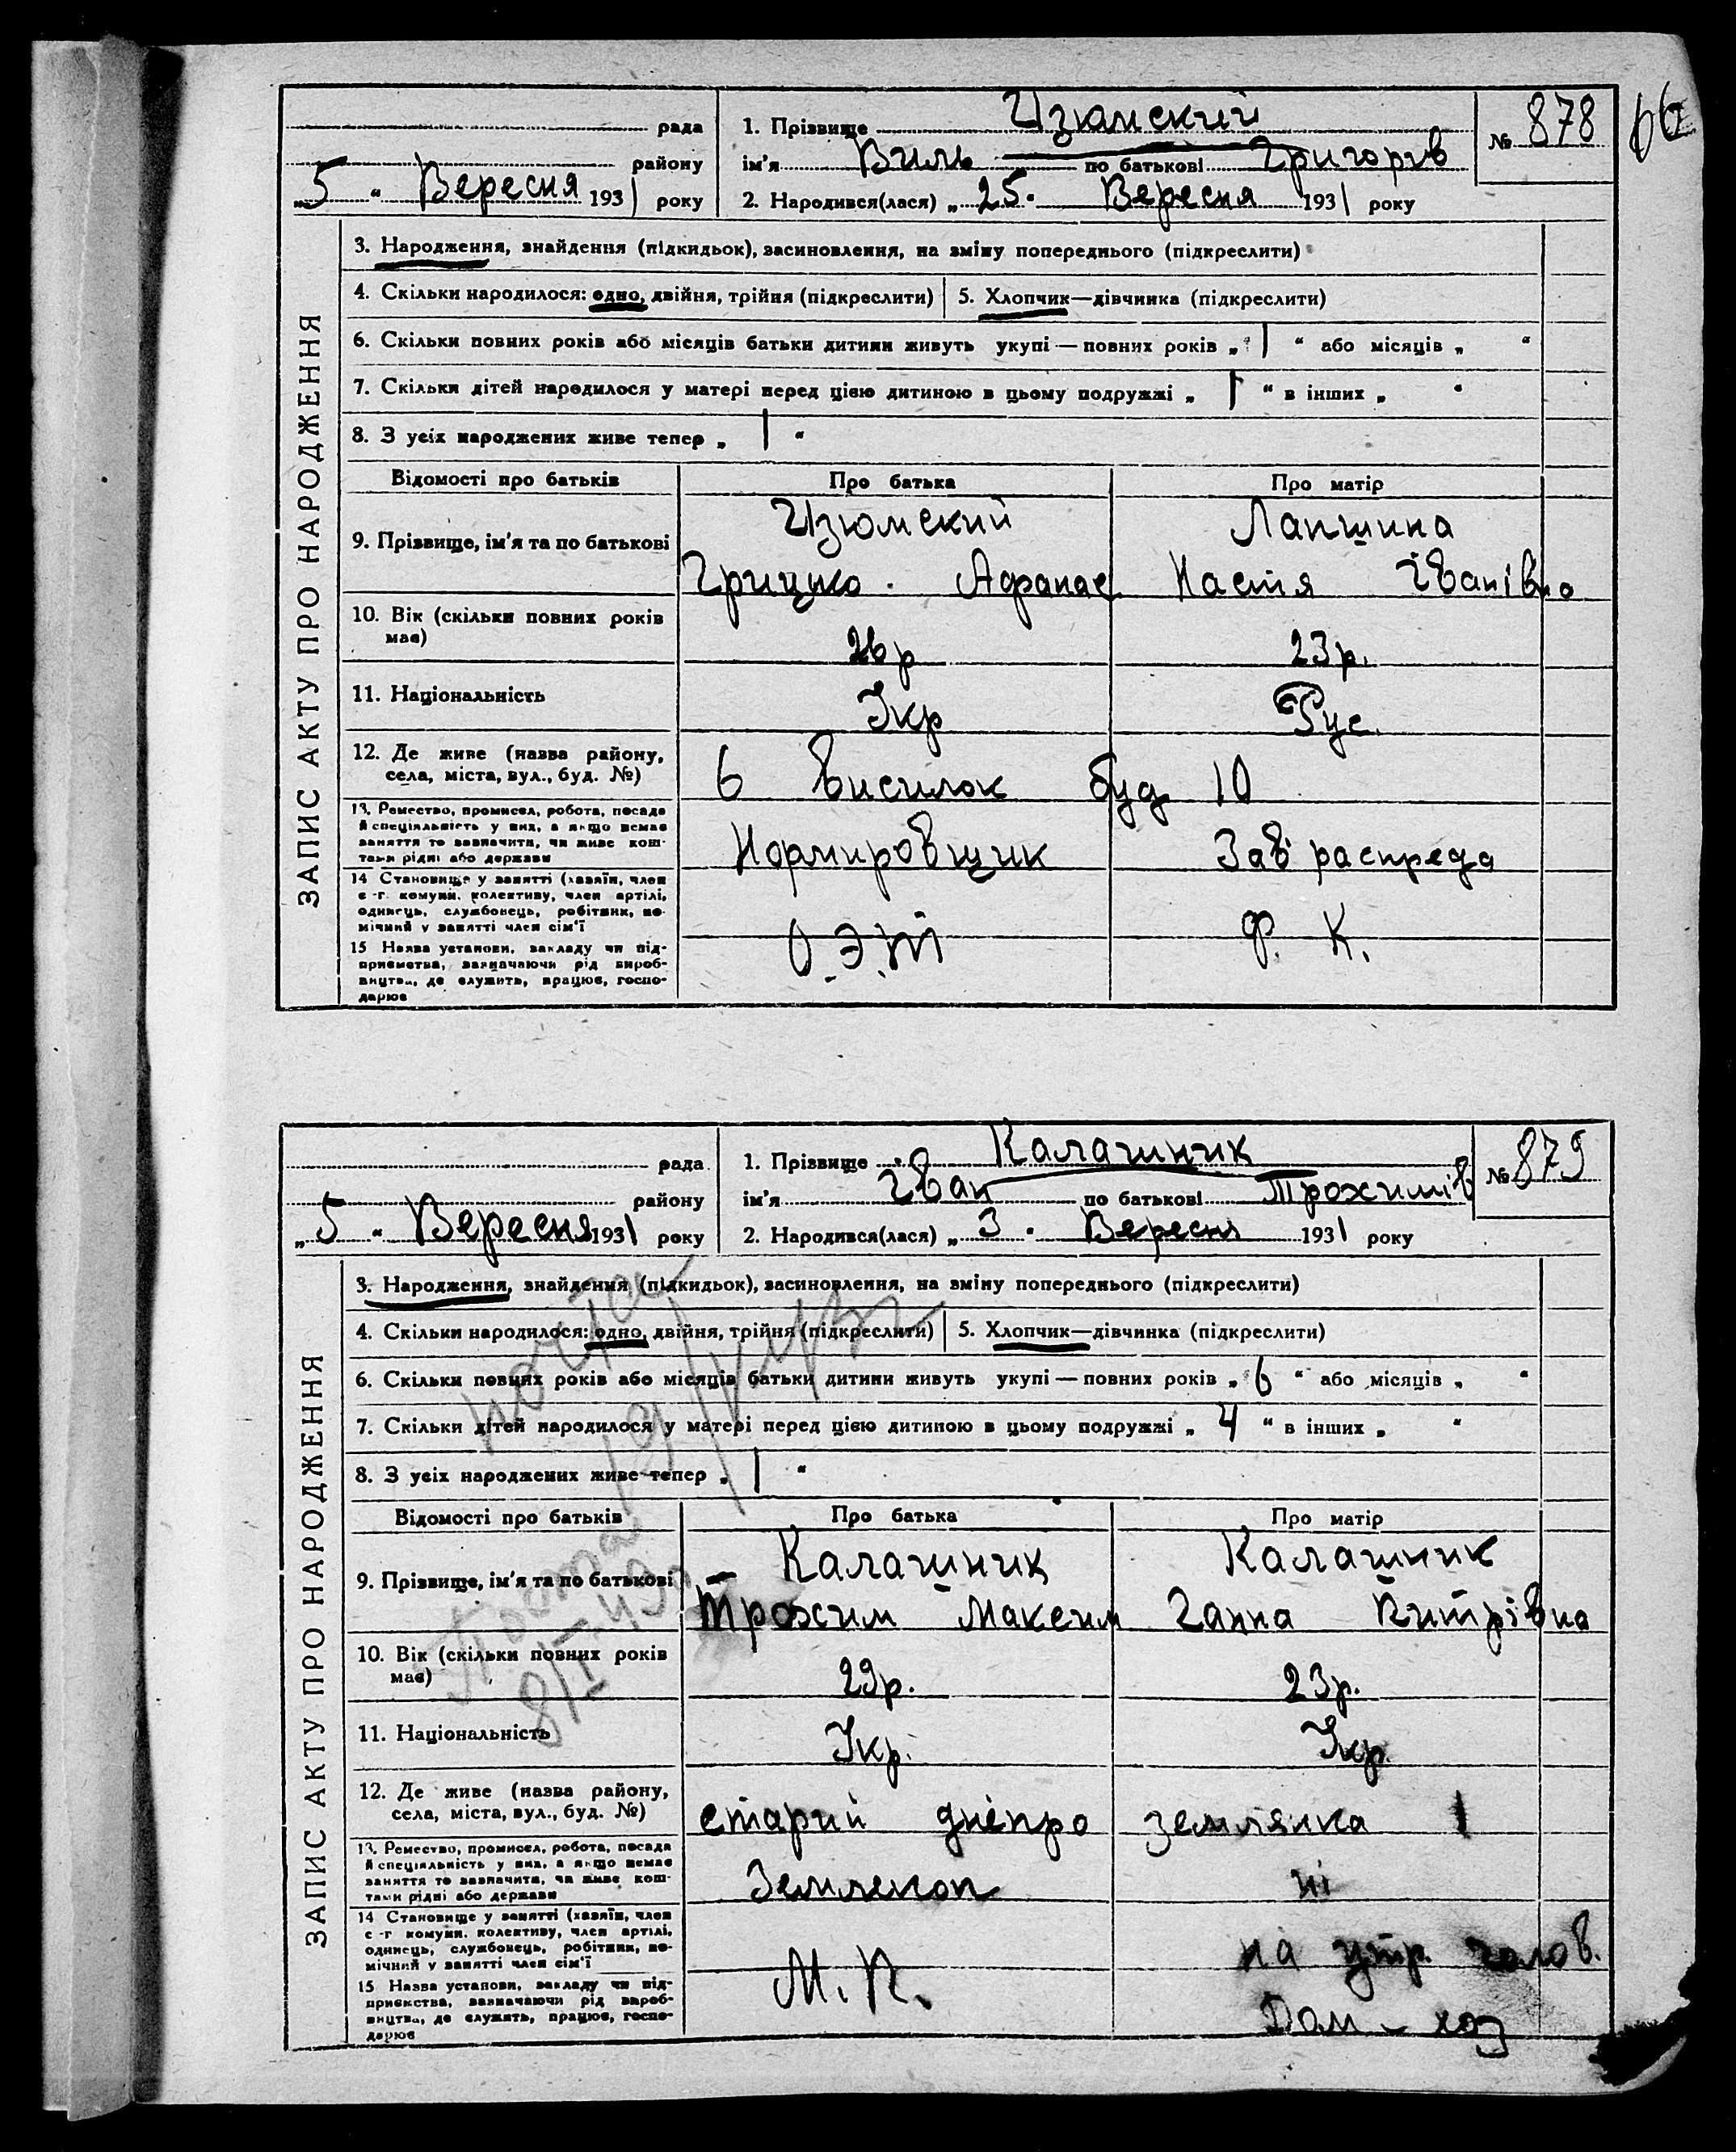 рада
району
„5“ Вересня 1931 року
1. Прізвище Изюмский
ім'я Виль по батькові Григорів
2. Народився(лася) „25. Вересня 1931 року
№ 878
ЗАПИС АКТУ ПРО НАРОДЖЕННЯ
3. Народження, знайдення (підкидьок), засиновлення, на зміну попереднього (підкреслити)
4. Скільки народилося: одно, двійня, трійня (підкреслити) 5. Хлопчик—дівчинка (підкреслити)
6. Скільки повних років або місяців батьки дитини живуть укупі — повних років „1“ або місяців „ “
7. Скільки дітей народилося у матері перед цією дитиною в цьому подружжі „1“ в інших „ “
8. З усіх народжених живе тепер „1“
Відомості про батьків Про батька Про матір
9. Прізвище, ім'я та по батькові
Изюмский Лапшина
Грицько. Афанас Настя Іванівна
10. Вік (скільки повних років має) 26р 23р.
11. Національність Укр Рус.
12. Де живе (назва району, села, міста, вул., буд. №) 6 висилок буд 10
13. Ремество, промисел, робота, посада й спеціяльність у них, а якщо немає заняття то зазначити, чи живе коштами рідні або держави
Нормировщик Зав распреда
14 Становище у занятті (хазяїн, член с.-г. комуни, колективу, член артілі, одинець, службовець, робітник, помічний у занятті член сім'ї
О.Э.М Ф. К.
15 Назва установи, закладу чи підприємства, зазначаючи рід виробництва, де служить, працює, господарює
рада
району
„5“ Вересня 1931 року
1. Прізвище Калашник
ім'я Іван по батькові Трохимів
2. Народився(лася) „3. Вересня 1931 року
№ 879
ЗАПИС АКТУ ПРО НАРОДЖЕННЯ
3. Народження, знайдення (підкидьок), засиновлення, на зміну попереднього (підкреслити)
4. Скільки народилося: одно, двійня, трійня (підкреслити) 5. Хлопчик—дівчинка (підкреслити)
6. Скільки повних років або місяців батьки дитини живуть укупі — повних років „6“ або місяців „ “
7. Скільки дітей народилося у матері перед цією дитиною в цьому подружжі „4“ в інших „ “
8. З усіх народжених живе тепер „1“
Відомості про батьків Про батька Про матір
9. Прізвище, ім'я та по батькові
Калашник Калашник
Трохим Максим Ганна Дмитрівна
10. Вік (скільки повних років має) 29р. 23р.
11. Національність Укр. Укр.
12. Де живе (назва району, села, міста, вул., буд. №) старий дніпро землянка 1
13. Ремество, промисел, робота, посада й спеціяльність у них, а якщо немає заняття то зазначити, чи живе коштами рідні або держави
Землекоп ні
14 Становище у занятті (хазяїн, член с.-г. комуни, колективу, член артілі, одинець, службовець, робітник, помічний у занятті член сім'ї
на утр. чолов.
15 Назва установи, закладу чи підприємства, зазначаючи рід виробництва, де служить, працює, господарює
М.П. Дом – хоз